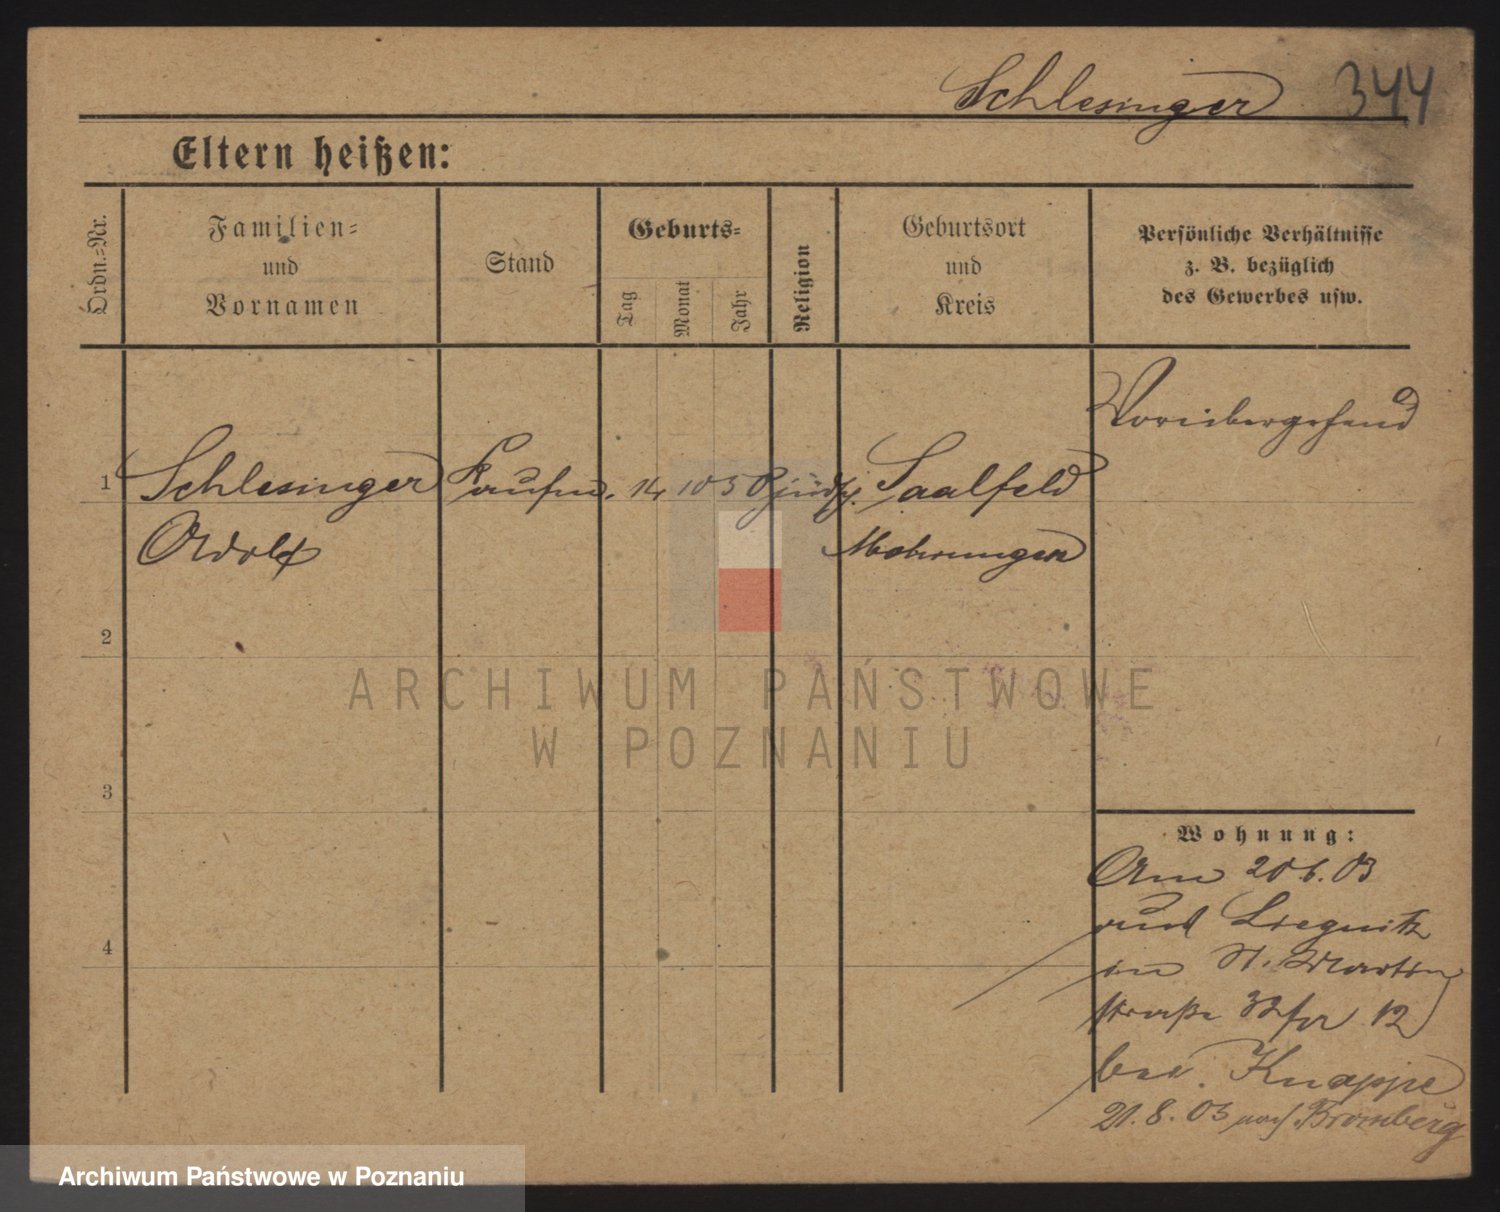 Schlesinger 344
Eltern heißen:
Ordn.=Nr.
Familien=
und
Vornamen
Stand
Geburts=
Tag
Monat
Jahr
Religion
Geburtsort
und
Kreis
Persönliche Verhältnisse
z. B. bezüglich
des Gewerbes usw.
Vorübergehend
1 Schlesinger Kaufm. 14 10 50 jüdsch. Saalfeld
Adolf Mohrungen
2
3
4
Wohnung:
Am 20 6. 03
aus Liegnitz
in St. Martin
straße 32 12
bei. Knappe
21. 8. 03 nach Bromberg
ARCHIWUM PAŃSTWOWE
W POZNANIU
Archiwum Państwowe w Poznaniu